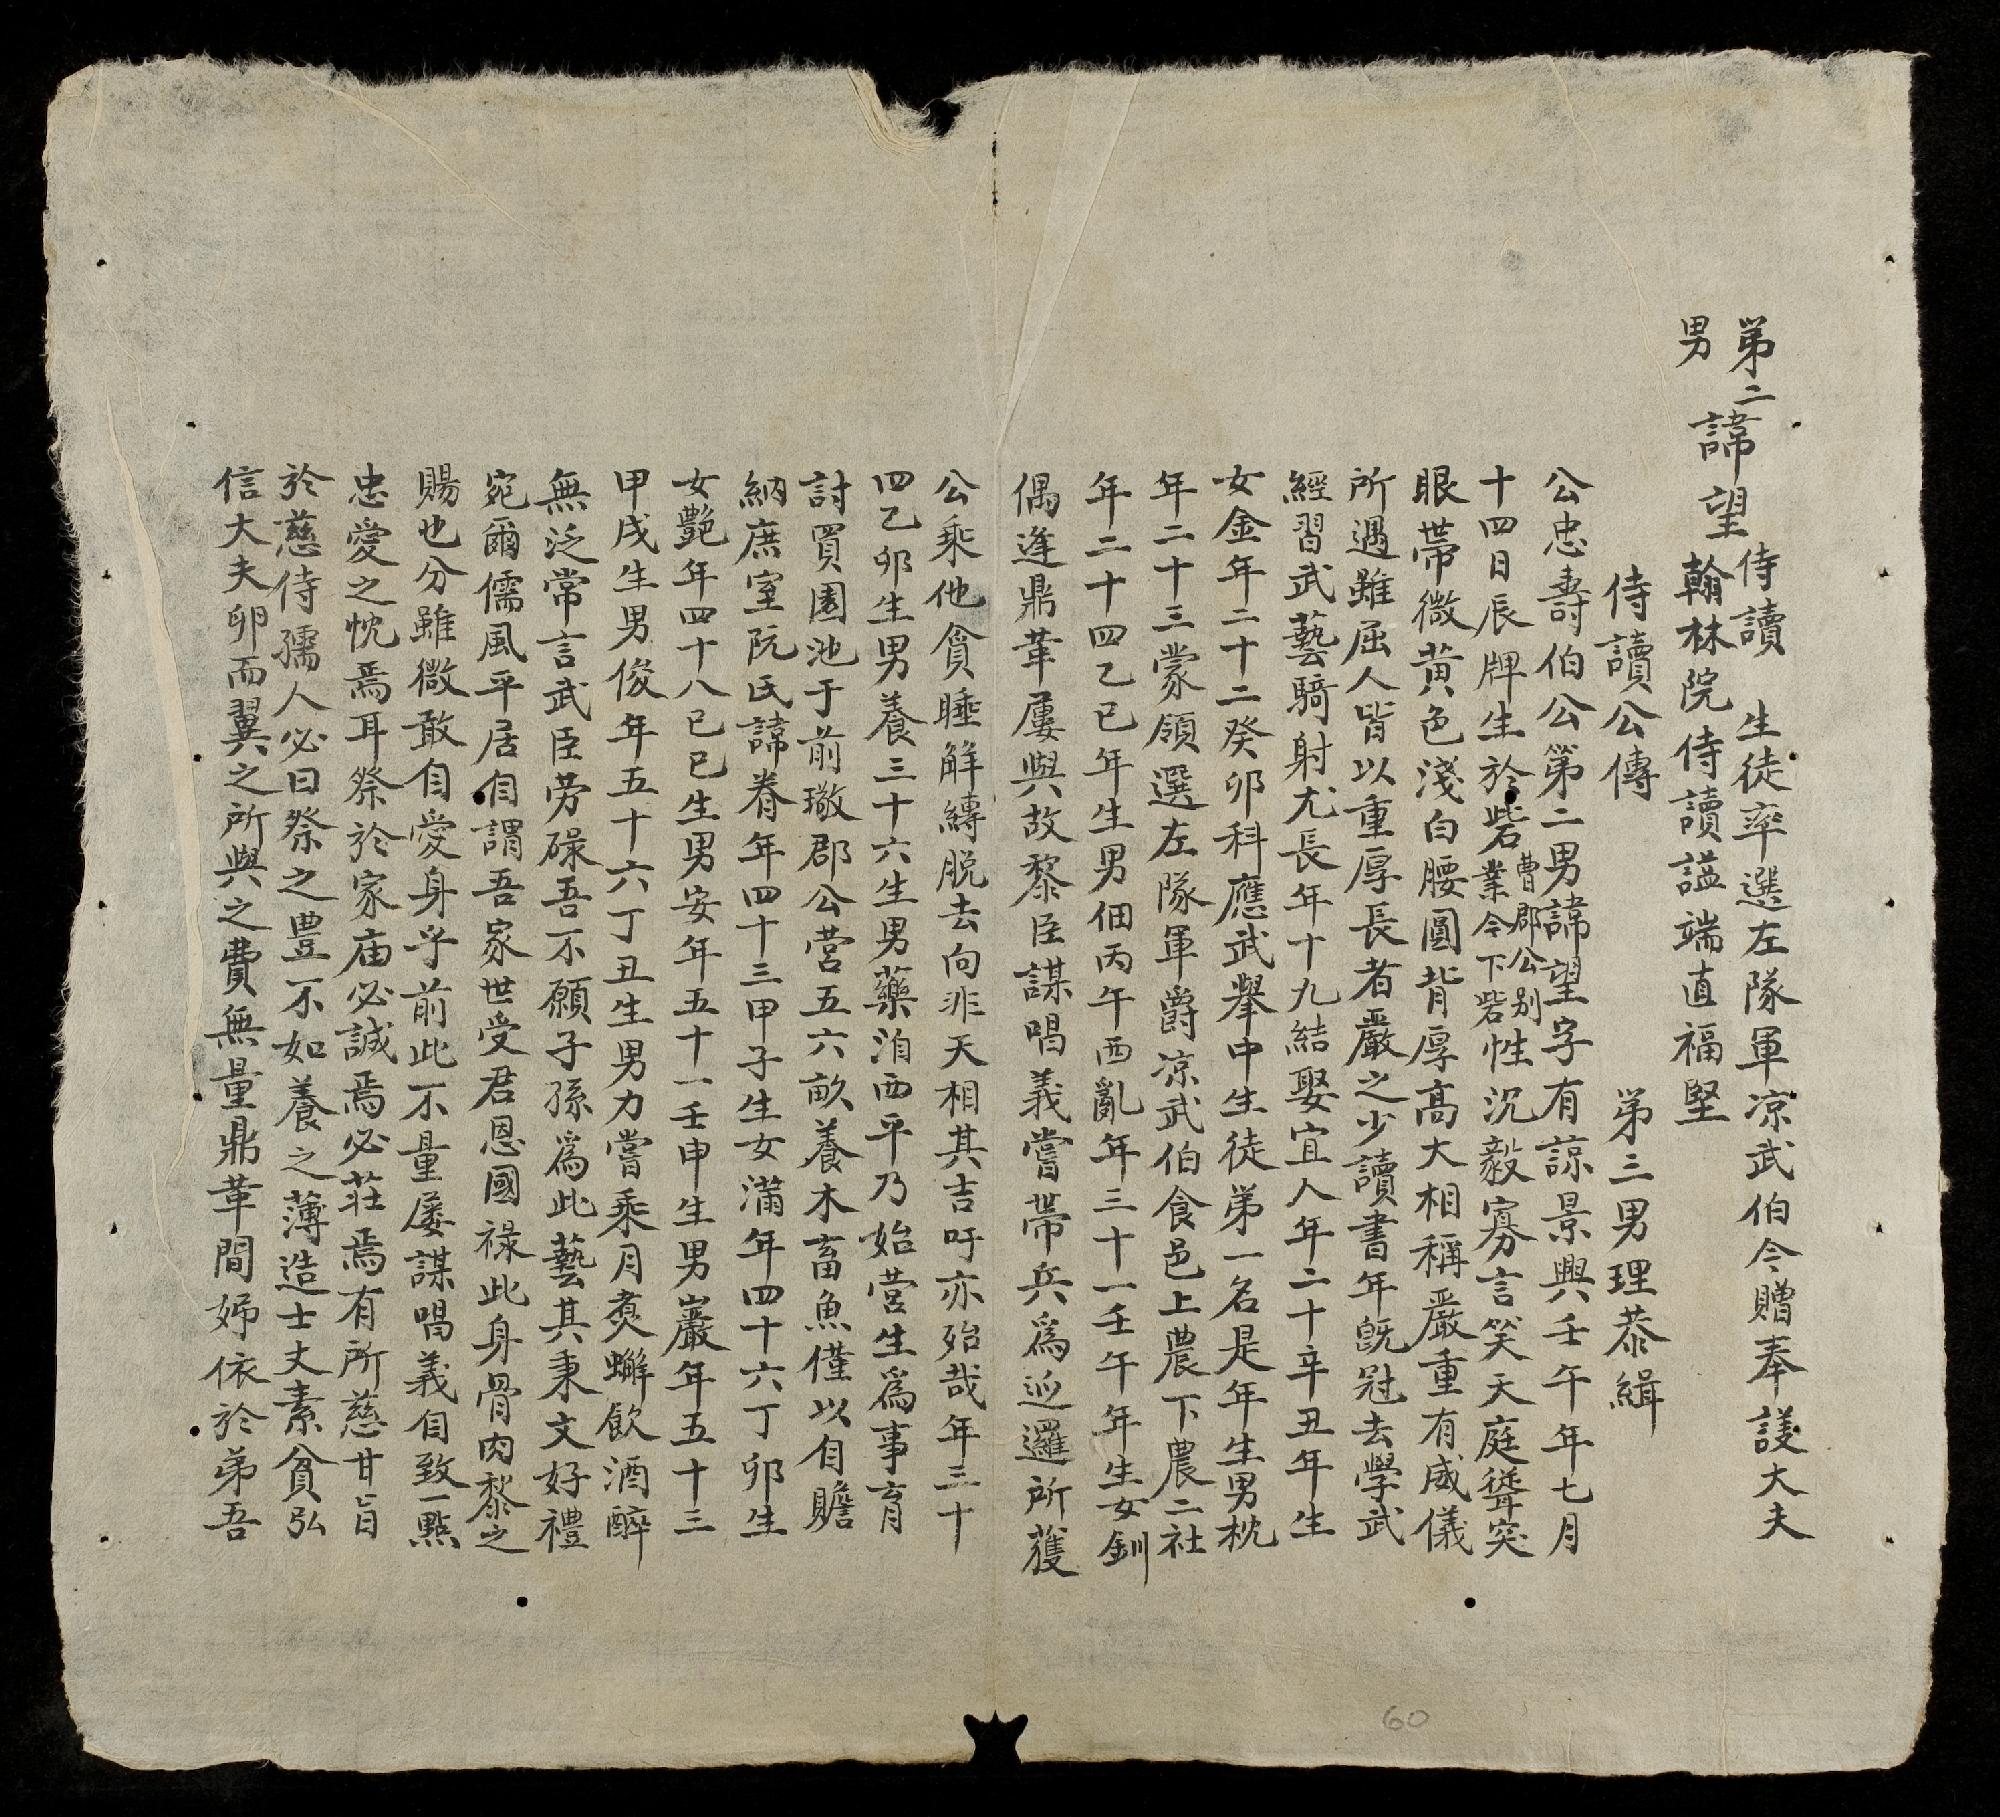 第二男
諱望
侍讀 生徒率選左隊軍凉武伯今贈奉議大夫
翰林院侍讀謚端直福堅
侍讀公傳 第三男理恭緝
公忠壽伯公第二男諱望字有諒景興壬午年七月
十四日辰牌生於砦曹郡公別業今下砦性沉毅寡言笑天庭聳突
眼帶微黄色淺白腰圓背厚高大相稱嚴重有威儀
所遇雖屈人皆以重厚長者嚴之少讀書年既冠去學武
經習武藝騎射尤長年十九結娶宜人年二十辛丑年生
女金年二十二癸卯科應武擧中生徒第一名是年生男枕
年二十三蒙領選左隊軍爵凉武伯食邑上農下農二社
年二十四乙巳年生男佃丙午西亂年三十一壬午年生女釧
偶逢鼎革屢與故黎臣謀唱義嘗帶兵爲巡邏所獲
公乘他貪睡解縛脱去向非天相其吉吁亦殆哉年三十
四乙卯生男養三十六生男藥洎西平乃始营生爲事育
討買園池于前璥郡公营五六畝養木畜魚僅以自贍
納庶室阮氏諱眷年四十三甲子生女滿年四十六丁卯生
女艷年四十八己巳生男安年五十一壬申生男巖年五十三
甲戌生男俊年五十六丁丑生男力嘗乘月煑蠏飲酒醉
無泛常言武臣劳碌吾不願子孫爲此藝其秉文好禮
宛爾儒風平居自謂吾家世受君恩國祿此身骨肉黎之
賜也分雖微敢自愛身乎前此不量屡謀唱義自致一點
忠愛之忱焉耳祭於家庙必誠焉必荘焉有所慈甘旨
於慈侍孺人必曰祭之豊不如養之薄造士丈素貧弘
信大夫卵而翼之所與之費無量鼎革間婦依於弟吾
60